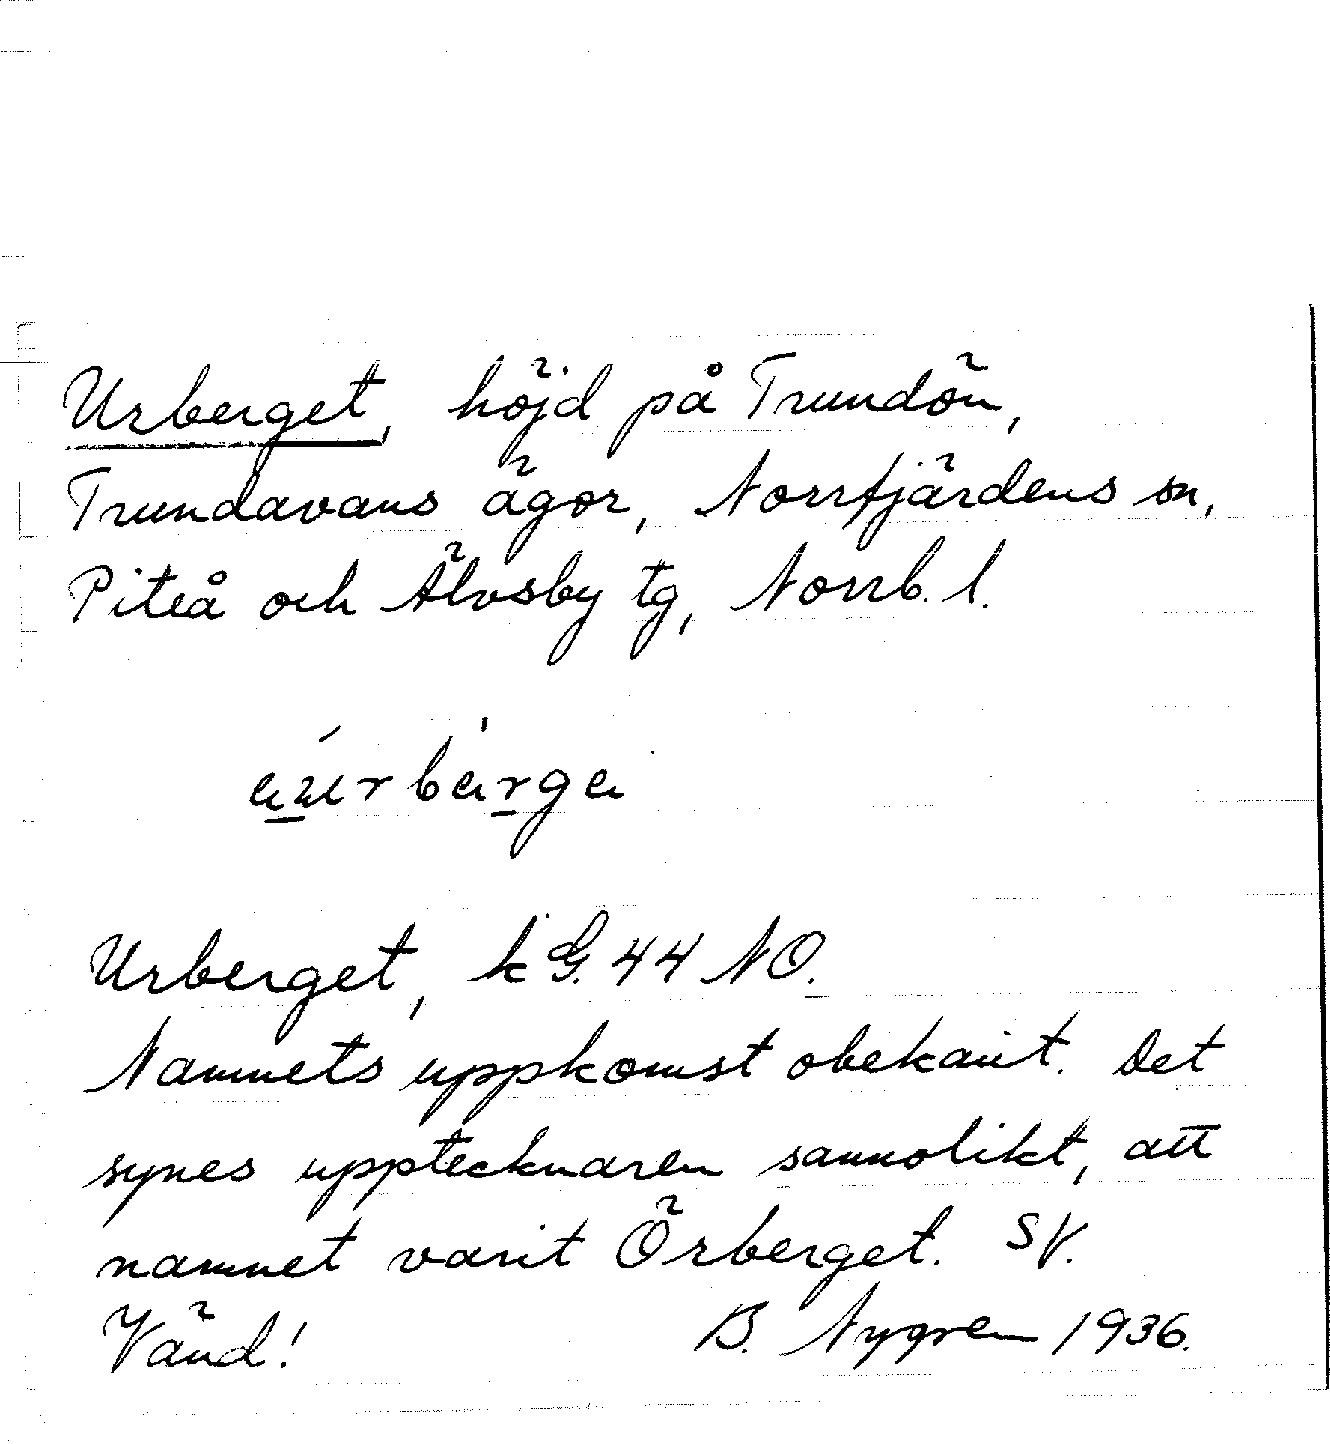 Urberget, höjd på Trundön,
Trundavans ägor, Norrfjärdens sn,
Piteå och Älvsby tg, Norrb. l.
Urberget, k G. 44 NO.
Namnets uppkomst obekant. Det
synes upptecknaren sannolikt, att
namnet varit Örberget. SV.
Vänd! B. Nygren 1936.